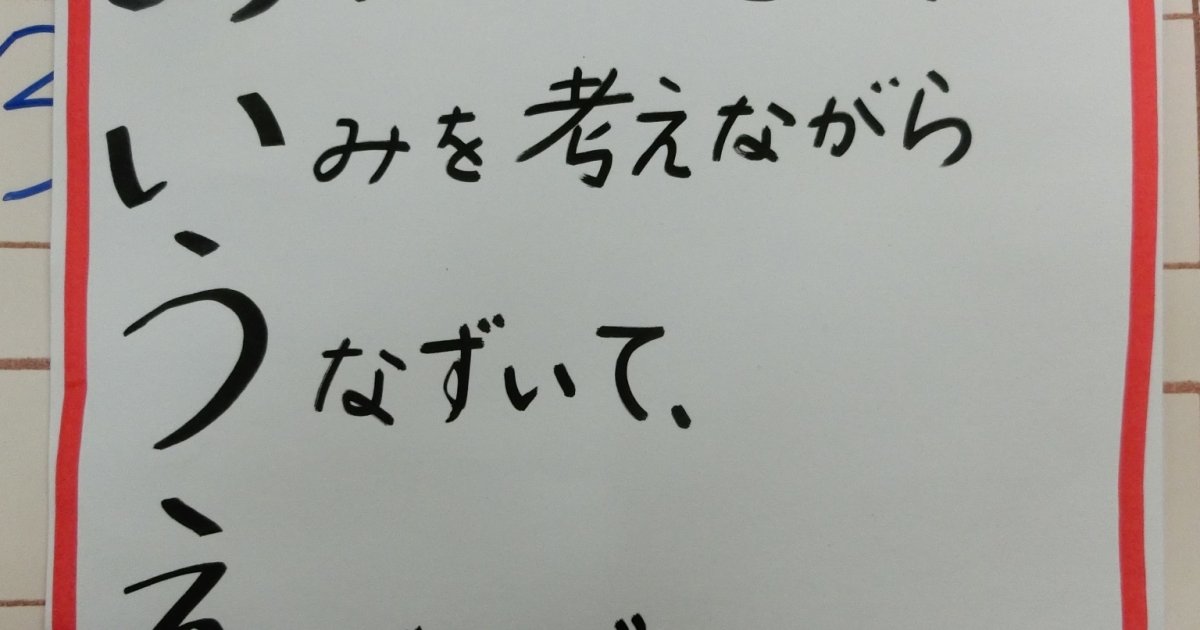 いみを考えながら
うなずいて、
え